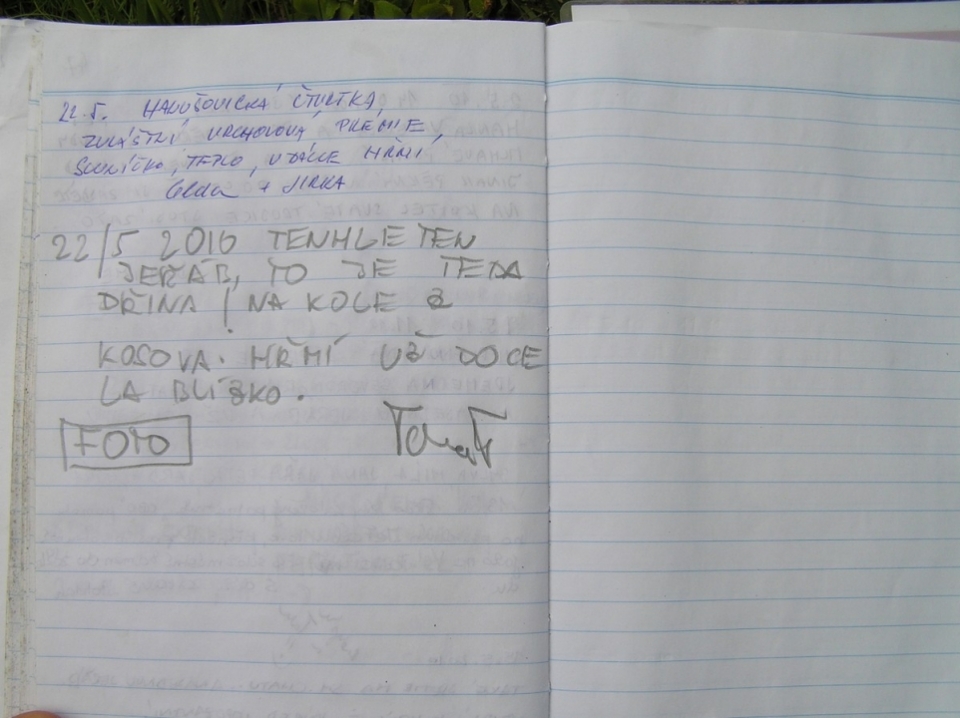 22.5. HANUŠOVICKÁ ČTVRTKA,
ZVLÁŠTNÍ VRCHOLOVÁ PRÉMIE,
SLUNÍČKO, TEPLO, V DÁLCE HŘMÍ
+ JIRKA
22/5 2010 TENHLE TEN
JEŘÁB, TO JE TEDA
DŘINA! NA KOLE Z
KOSOVA. HŘMÍ UŽ DOCE
LA BLÍZKO.
FOTO